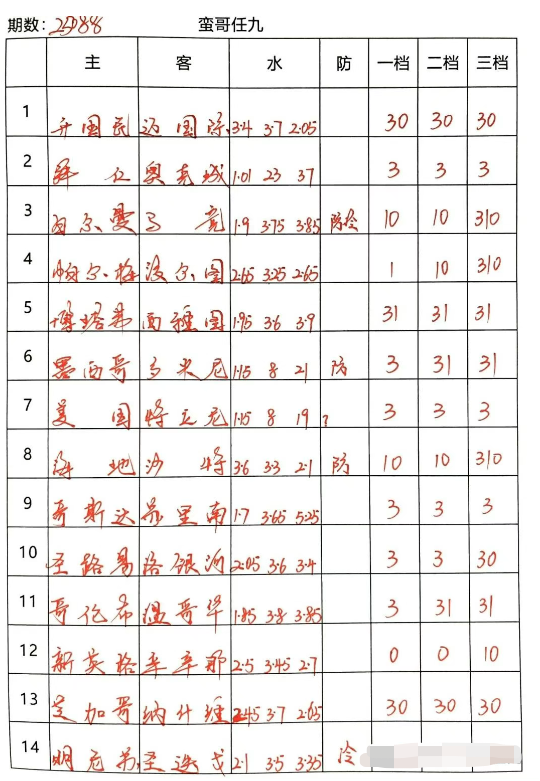 期数: 25088 蛮哥任九
主 客 水 防 一档 二档 三档
1 开国民 迈国际 3.4 3.7 2.05 30 30 30
2 拜仁 奥克城 1.01 23 37 3 3 3
3 巴尔曼 马竞 1.9 3.75 3.85 防冷 10 10 310
4 帕尔梅 波尔图 2.65 3.25 2.65 1 10 310
5 博塔弗 西雅图 1.95 3.6 3.9 31 31 31
6 墨西哥 多米尼 1.15 8 21 防 3 31 31
7 美国 特立尼 1.15 8 19 ? 3 3 3
8 海地 沙特 3.6 3.3 2.1 防 10 10 310
9 哥斯达 苏里南 1.7 3.65 5.25 3 3 3
10 圣路易 洛银河 2.05 3.6 3.4 3 3 30
11 哥伦布 温哥华 1.85 3.8 3.85 3 31 31
12 新英格 辛辛那 2.5 3.45 2.7 0 0 10
13 芝加哥 纳什维 2.45 3.7 2.65 30 30 30
14 明尼苏 圣迭戈 2.1 3.5 3.35 冷